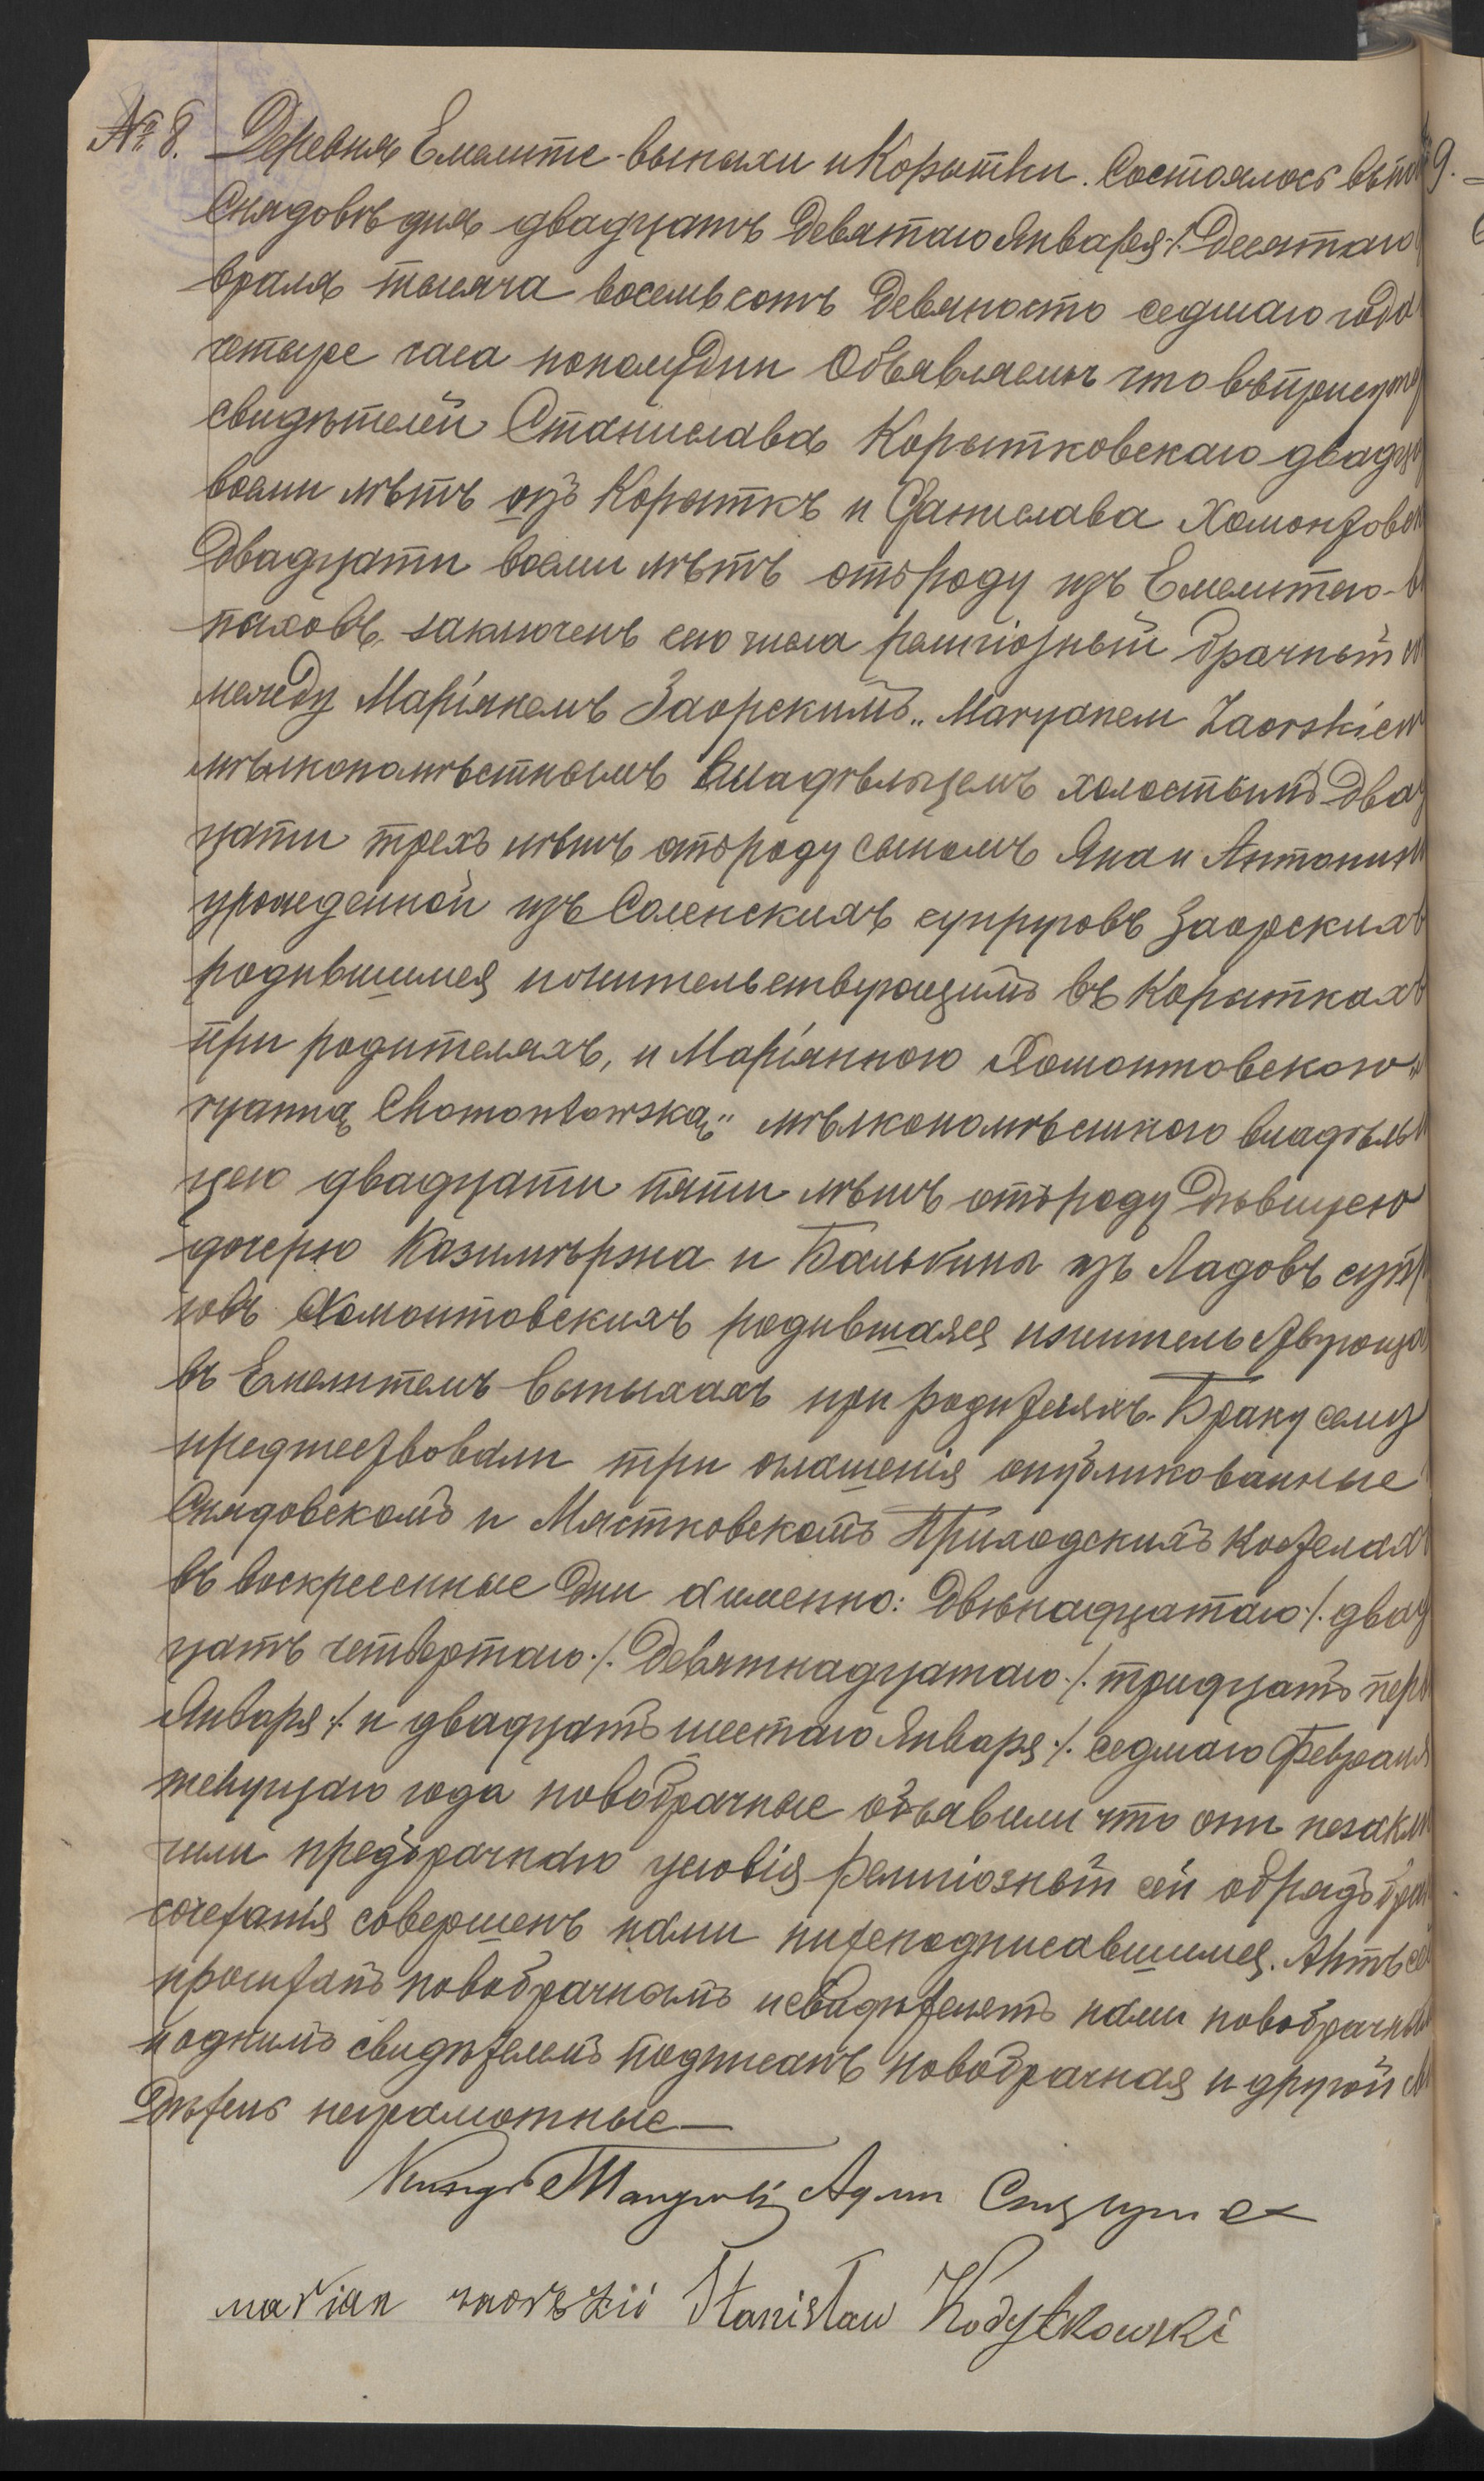 № 8. Деревня Емелите-выпахи и Корытки. Состоялось въ
Снядовѣ дня двадцать девятаго Января ./. Десятаго
враля тысяча восемьсотъ девяносто седмаго года
четыре часа пополудни Объявляемъ что въ
свидѣтелей Станислава Корытковскаго
восми лѣтъ изъ Корыткъ и Станислава
двадцати восми лѣтъ отъ роду изъ
паховъ заключенъ сего числа религіозный брачный
между Маріяномъ Заорскимъ „Maryanem Zaorskiem
мѣлкопомѣстнымъ владѣльцемъ холостымъ два
цати трехъ лѣтъ отъ роду сыномъ Яна и Антонины
урожденной изъ Соленскихъ супруговъ Заорскихъ
родившимся и жительствующимъ въ Корыткахъ
при родителяхъ, и Маріанною Хомонтовскою „
ryanną Chomontowską" мѣлкопомѣстною владѣль
цею двадцати пяти лѣтъ отъ роду Дѣвицею
дочерю Казимѣржа и Бальбины изъ Ладовъ суп
говъ Хомонтовскихъ родившаяся и жительствующа
въ Емелитемъ-выпыхахъ при родителяхъ. Браку сему
предшествовали три оглашенія опубликованные
Снядовскомъ и Мястковскомъ Приходскихъ Костелахъ
въ воскресенные дни а именно: Двѣнадцатаго ./. двад
цать четвертаго ./. Девятнадцатаго ./. тридцать пер
Января ./. и двадцать шестаго Января ./. седмаго Февраля
текущаго года новобрачные объявили что они незаклю
чили предбрачнаго условія религіозный сей обрядъ бра
сочетанія совершенъ нами нижеподписавшимся. Актъ сей
прочитанъ новобрачнымъ и свидѣтелемъ нами новобрачны
и однимъ свидѣтелемъ подписанъ новобрачная и другой
дѣтель неграмотные —
marian zaorski Stanisław Korytkowski